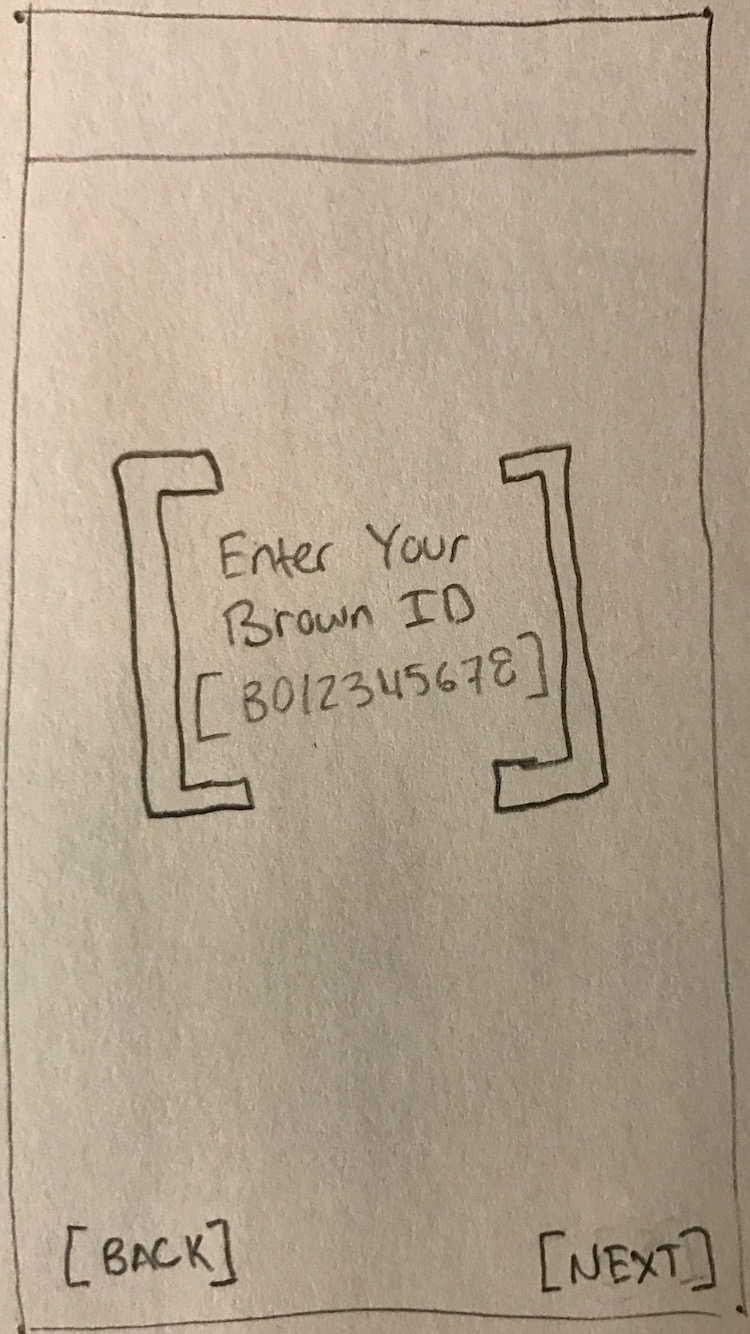 Enter Your
Brown ID
[B012345678]
[BACK] [NEXT]